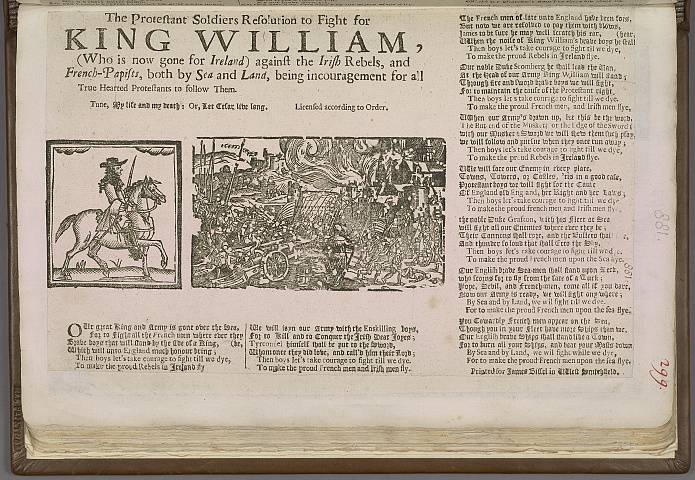 The Protestant Soldiers Resolution to Fight for
KING WILLIAM,
(Who is now gone for Ireland) against the Irish Rebels, and
French-Papists, both by Sea and Land, being incouragement for all
True Hearted Protestants to follow Them.
Tune, My life and my death; Or, Let Cesar live long. Licensed according to Order.
OUr great King and Army is gone over the Sea,
For to Fight all the French men where ever they
Brave boys that will stand by the side of a King, (be,
Which will unto England much honour bring;
Then boys let's take courage to fight till we dye,
To make the proud Rebels in Ireland fly
We will joyn our Army with the Enskilling boys,
For to Kill and to Conquer the Irish Dear Joyes;
Tyrconnel himself shall be put to the Sword,
Whom once they did love, and call'd him their Lord;
Then boys let's take courage to fight till we dye.
To make the proud French men and Irish men fly.
The French men of late unto England have been foes,
But now we are resolved to pay them with blows,
James to be sure he may well scratch his ear, (hear,
When the noise of King William's brave boys he shall
Then boys let's take courage to fight till we dye,
To make the proud Rebels in Ireland flye.
Our noble Duke Scomberg he shall lead the Van,
At the Head of our Army King William will stand;
Through fire and sword brave boys we will fight,
For to maintain the cause of the Protestant right.
Then boys let's take courage to fight till we dye.
To make the proud French men, and Irish men flye.
When our Army's drawn up, let this be the word,
The But end of the Musket, or the Edge of the Sword;
with our Musket & Sword we will shew them such play,
we will follow and pursue when they once run away;
Then boys let's take courage to fight till we dye,
To make the proud Rebels in Ireland flye.
We will face our Enemy in every place,
Towns, Towers, or Castles, 'tis in a good case,
Protestant boys we will fight for the Cause
Of England old England, her Right and her Laws;
Then boys let's take courage to fight till we dye
To make the proud french men and Irish men fly.
the noble Duke Grafton, with his Fleet at Sea
will fight all our Enemies where ever they be;
Their Cannons shall rore, and the Bullets shall
And thunder so loud that shall Eeco the Sky,
Then boys let's take courage to fight till we dye.
To make the proud French men upon the Sea flye.
Our English brave Sea-men shall stand upon Deck,
who scorns for to fly from the face of a Turk;
Pope, Devil, and French-men, come all if you dare,
Now our Army is ready, we will fight any where;
By Sea and by Land, we will fight till we dye.
For to make the proud French men upon the sea flye.
You Cowardly French men appear on the Sea,
Though you in your Fleet have more Ships than we,
Our English brave Ships shall stand like a Town,
For to burn all your Ships, and bear your Masts down
By Sea and by Land, we will fight while we dye,
For to make the proud French men upon the sea flye.
Printed for James Bissel in West Smithfield.
188
299.